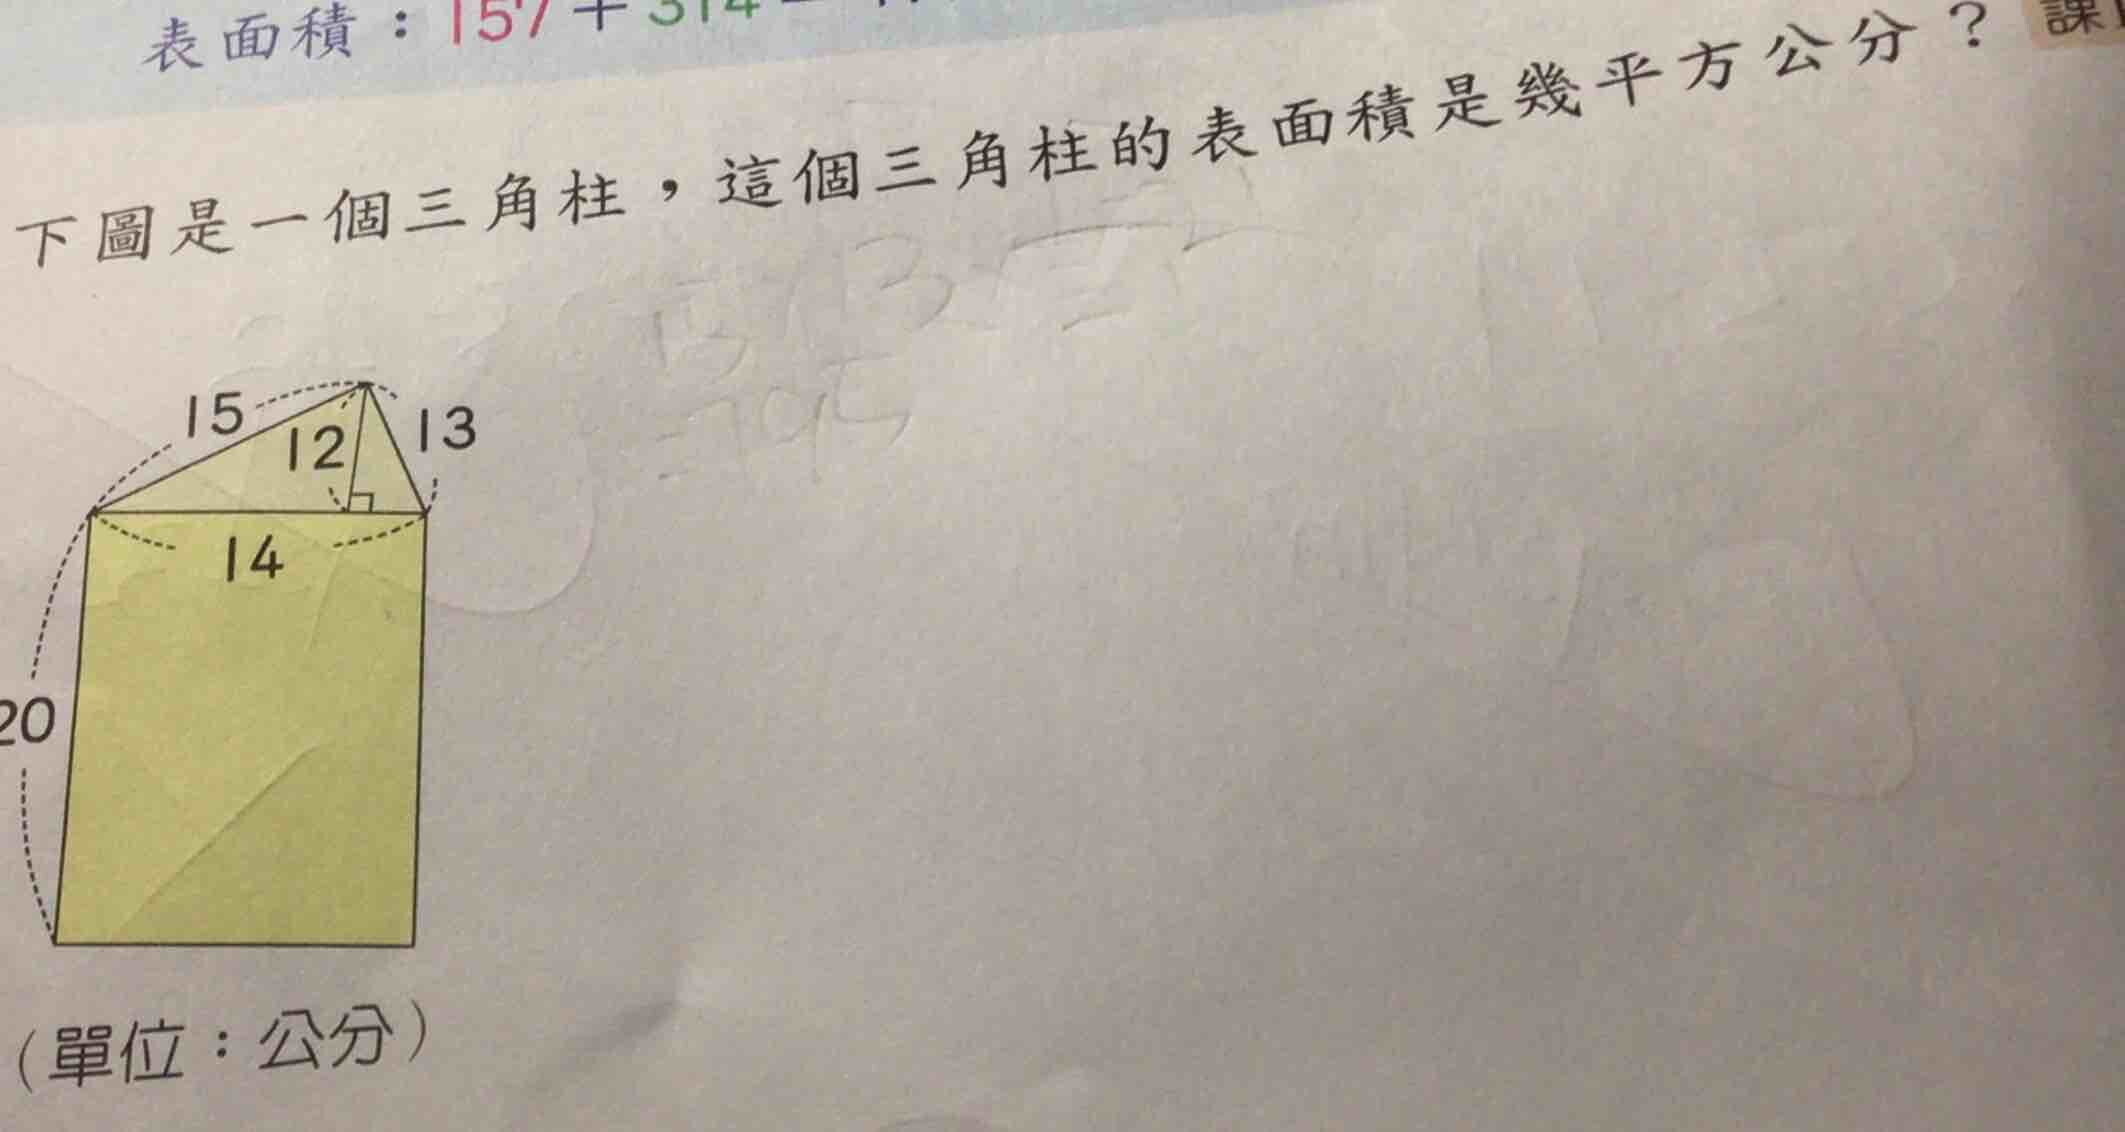 表面積：157＋314
下圖是一個三角柱，這個三角柱的表面積是幾平方公分？ 課
15
12
13
14
20
（單位：公分）